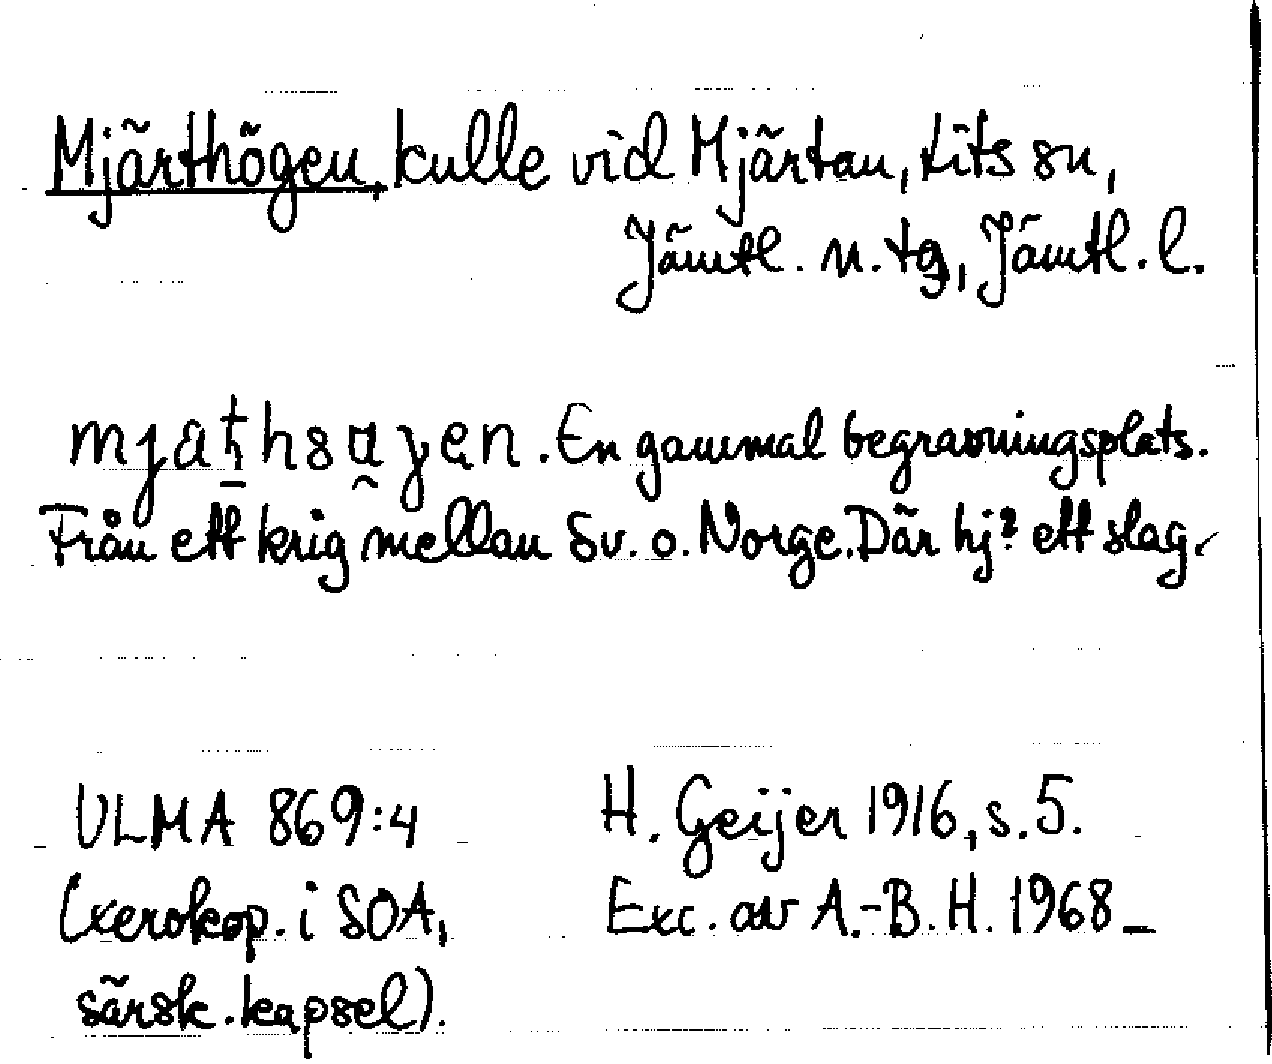 Mjärthögen, kulle vid Mjärtan, Lits sn,
Jämtl. n. tg, Jämtl. l.
En gammal begravningsplats.
Från ett krig mellan Sv. o. Norge. Där hj? ett slag.
ULMA 869:4
(xerokop. i SOA,
särsk. kapsel).
H. Geijer 1916, s. 5.
Exc. av A.-B. H. 1968